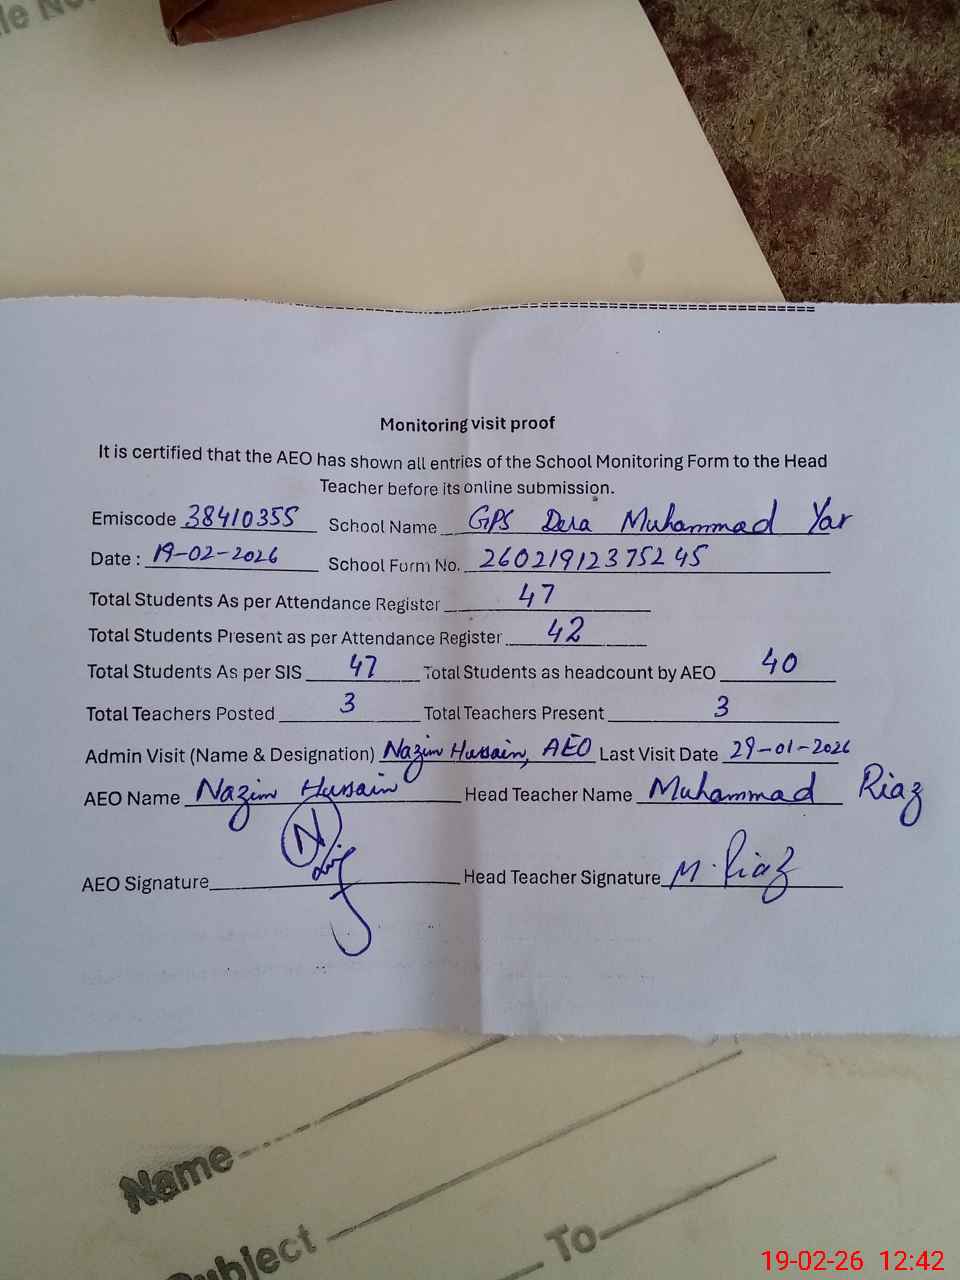 Monitoring visit proof
It is certified that the AEO has shown all entries of the School Monitoring Form to the Head
Teacher before its online submission.
Emiscode 38410355 School Name GPS Dera Muhammad Yar
Date : 19-02-2026 School Form No. 26021912375245
Total Students As per Attendance Register 47
Total Students Present as per Attendance Register 42
Total Students As per SIS 47 Total Students as headcount by AEO 40
Total Teachers Posted 3 Total Teachers Present 3
Admin Visit (Name & Designation) Nazim Hussain, AEO Last Visit Date 29-01-2026
AEO Name Nazim Hussain Head Teacher Name Muhammad Riaz
AEO Signature N Head Teacher Signature M. Riaz
Name
Subject
To
19-02-26 12:42